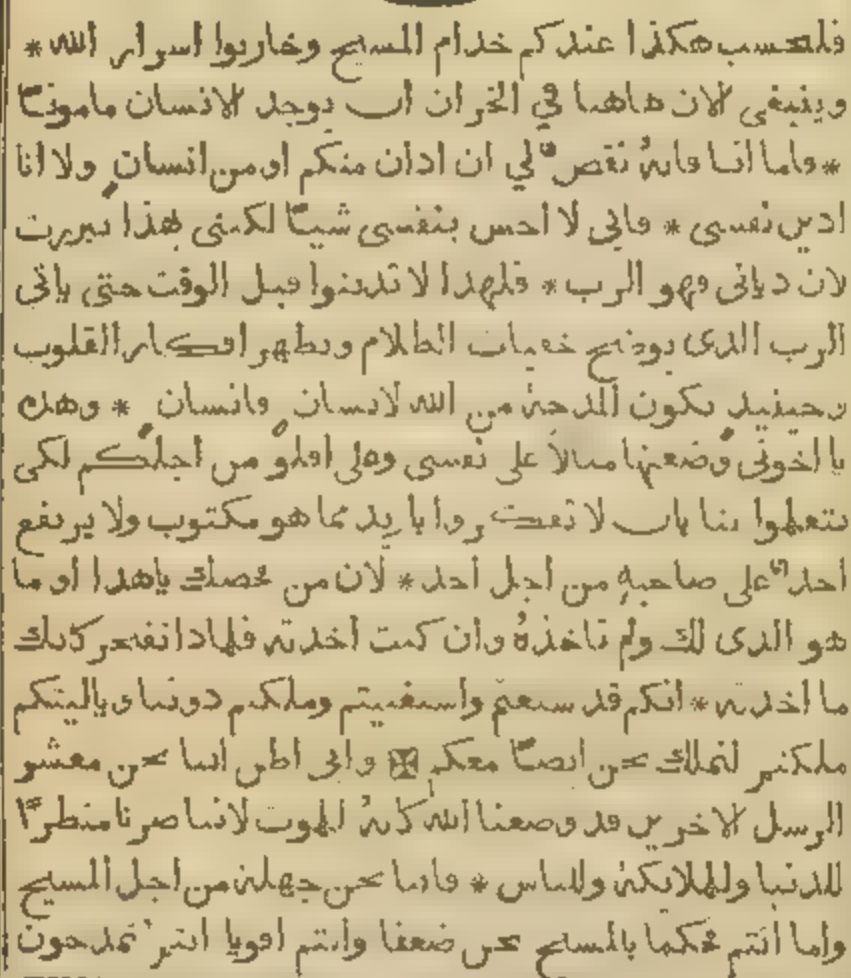 فلتحسب هكذا عندكم خدام المسيح وخازنوا اسرار الله *
وينبغى الان هاهنا في الخزان ان يوجد الانسان مامونًا
* فاما انا فانهُ نقصٌ لي ان ادان منكم او من انسان ولا انا
ادين نفسى * فانى لا احس بنفسى شيئًا لكننى بهذا تبررت
لان ديانى فهو الرب * فلهذا لا تدينوا قبل الوقت حتى ياتى
الرب الذى يوضح خفيات الظلام ويظهر افكار القلوب
وحينيد تكون المدحة من الله لانسان وانسان * وهذه
يا اخوتى وضعتها مثالاً على نفسى وعلى افلو من اجلكم لكى
تتعلموا بنا بان لا تفتكروا بازيد مما هو مكتوب ولا يرتفع
احدٌ على صاحبهِ من اجل احد * لان من يخصك ياهذا او ما
هو الذى لك ولم تاخذهُ وان كنت اخذته فلماذا تفتخر كانك
ما اخذته * انكم قد شبعتم واستغنيتم وملكتم دوننا وياليتكم
ملكتم لنملك نحن ايضًا معكم ✠ وانى اظن اننا نحن معشر
الرسل الاخرين قد وضعنا الله كانهُ للموت لاننا صرنا منظرًا
للدنيا وللملايكة وللناس * فاننا نحن جهلة من اجل المسيح
واما انتم فحكما بالمسيح نحن ضعفا وانتم اقويا انتم تمدحون